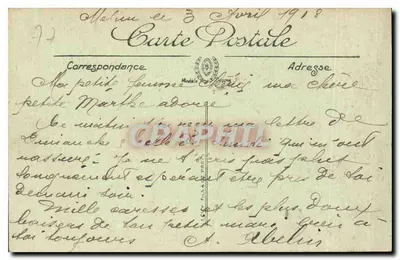 Melun le 3 Avril 1918
77
Carte Postale
Correspondance Adresse
Ma petite femme chérie ma chère
petite Marthe adorée
Ce matin ma lettre de
Dimanche celle de qui m'ont
rassuré. Je ne t'écris pas plus
longuement espérant être près de toi
demain soir.
Mille caresses et les plus doux
baisers de ton petit mari qui à
toi toujours A.
CPAPHIL